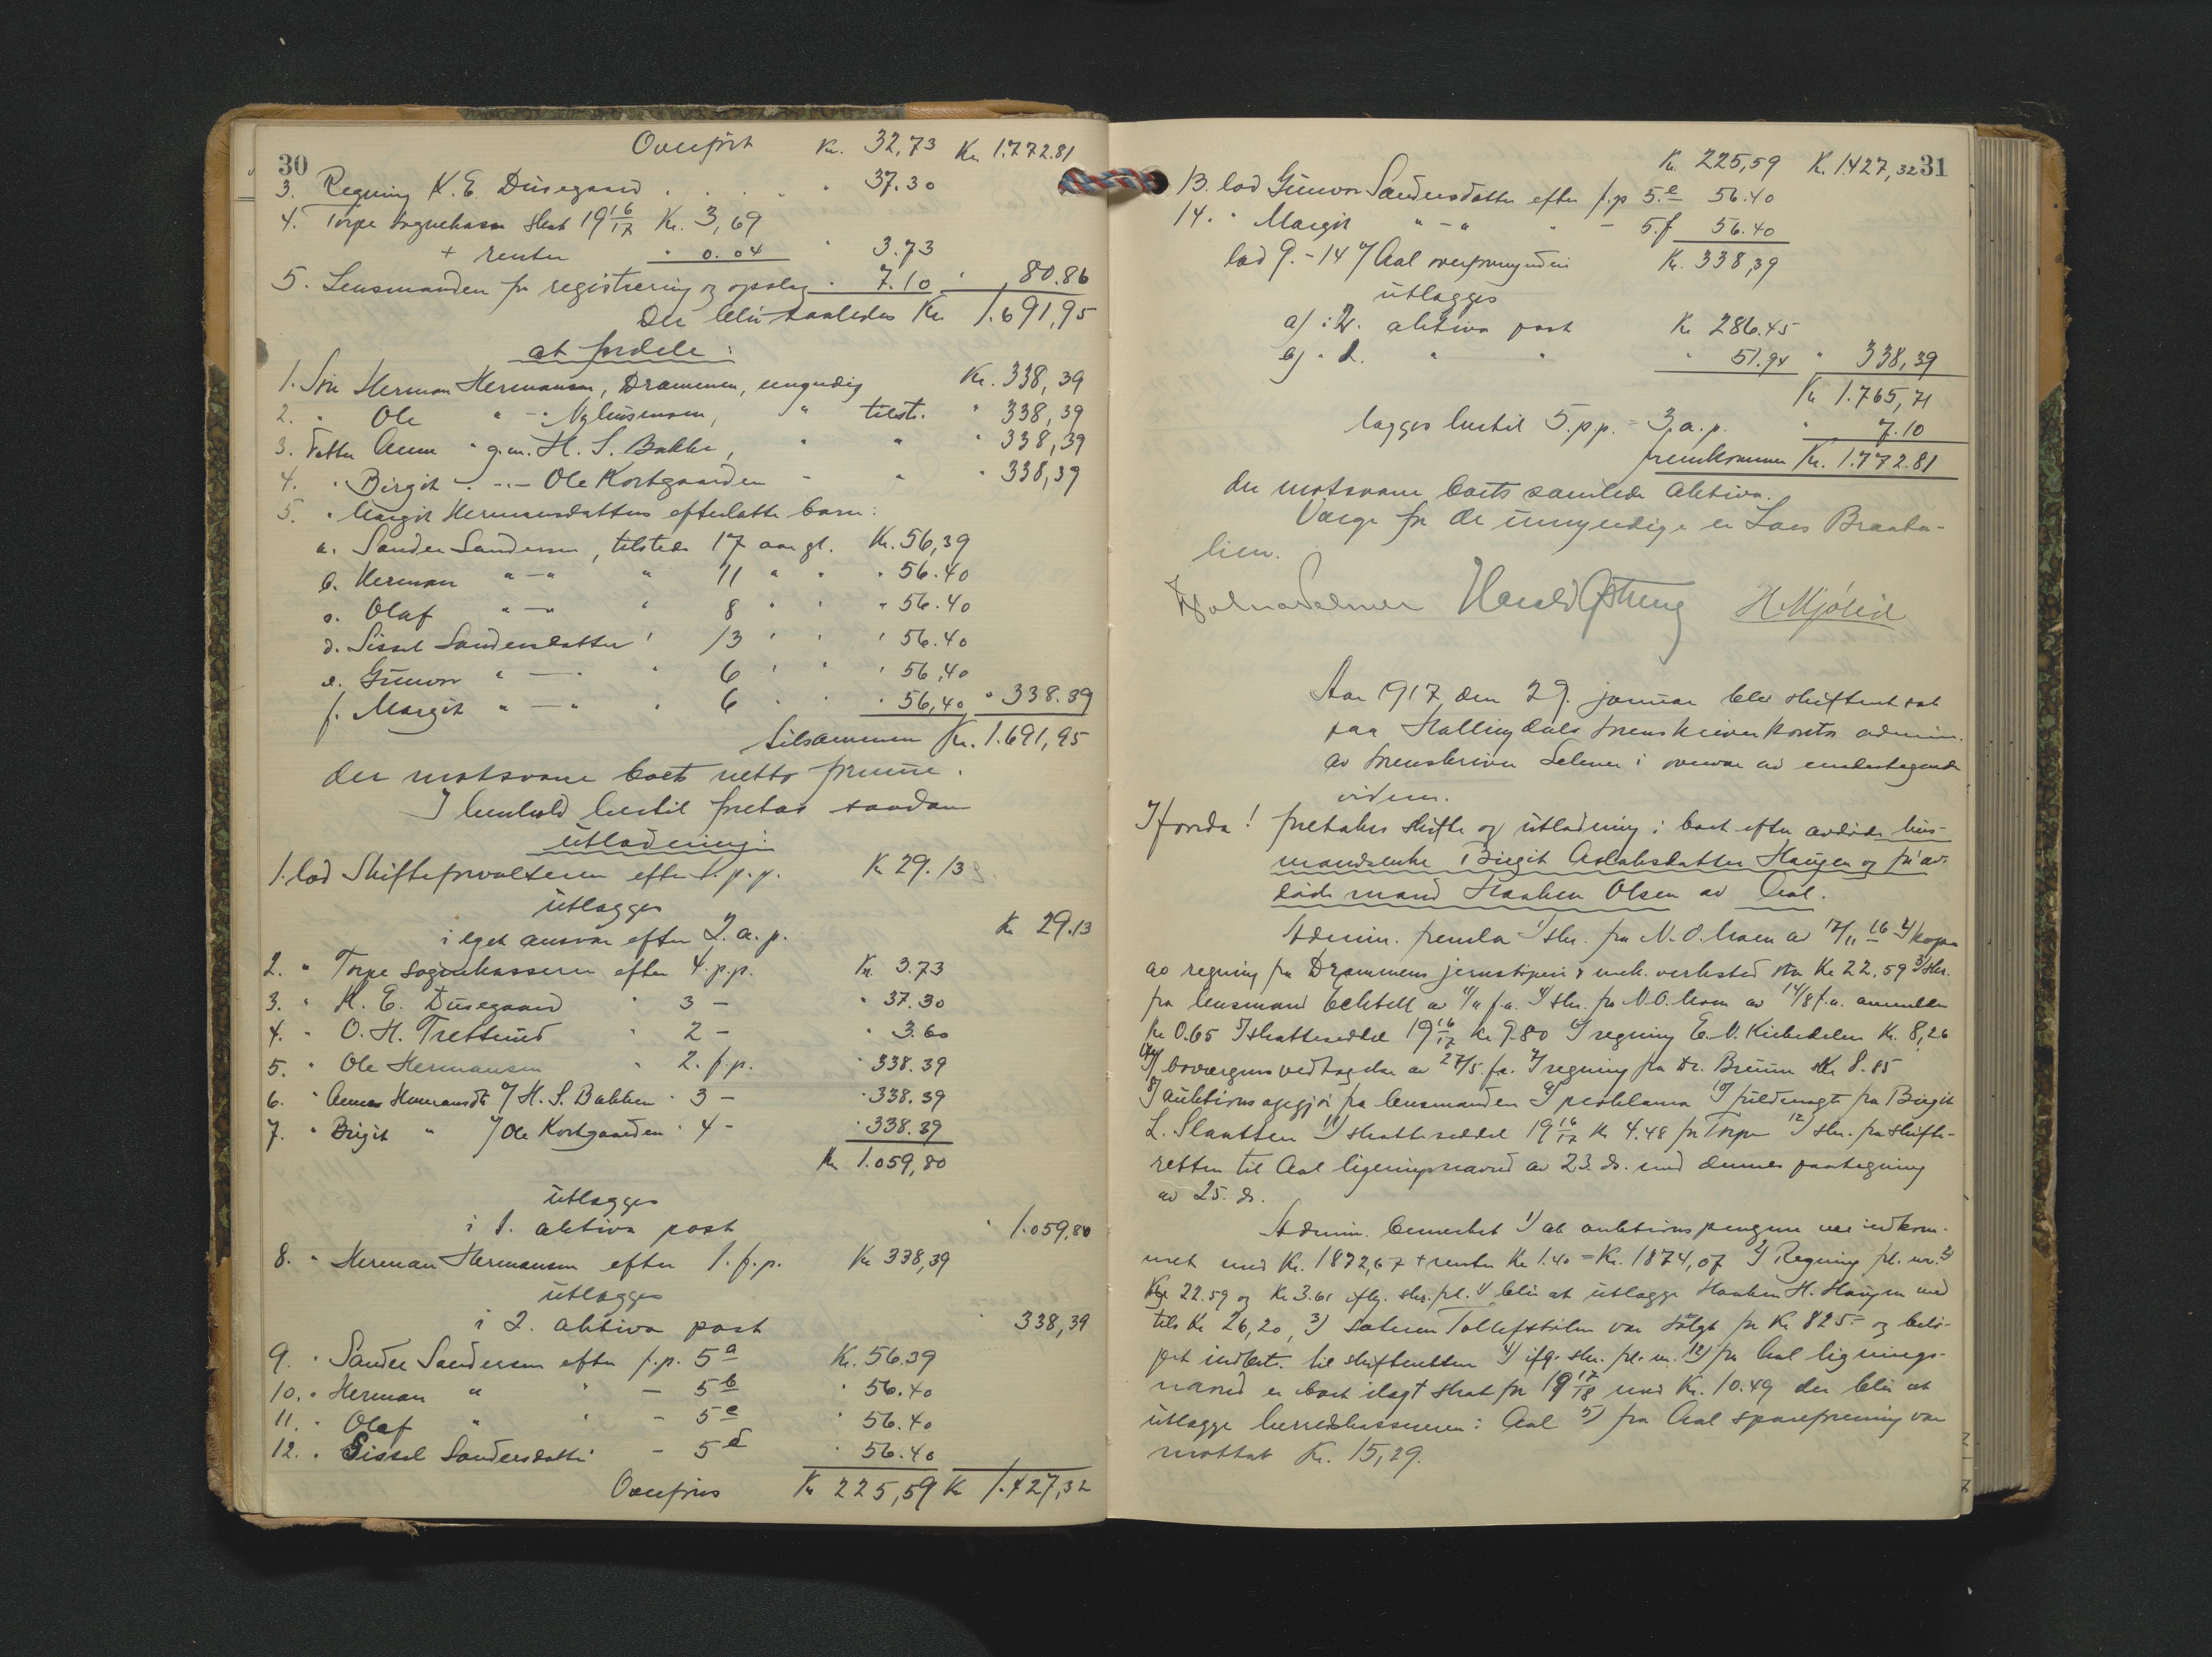 30
Overført Kr. 32,73 Kr. 1.772.81
3. Regning K. E. Dusegaard . . . . " 37.30
4. Torpe sognekasse skat 19 16/17 Kr. 3,69
+ renter " 0.04 " 3.73
5. Lensmanden for registrering og opslag " 7.10 " 80.86
Der blir saaledes Kr 1.691,95
at fordele:
1. Søn Herman Hermansen, Drammen, umyndig Kr. 338,39
2. " Ole " - " Nyhusmoen, " tilst. " 338,39
3. Datter Anne " g.m. H. S. Bakken, " " " 338,39
4. " Birgit " -"- Ole Kortgaarden - " " 338,39
5. " Margit Hermansdatters efterlatte barn:
a. Sander Sandersen, tilstede 17 aar gl. Kr. 56,39
b. Herman " - " " 11 " " " 56.40
c. Olaf " - " " 8 " " " 56.40
d. Sissel Sandersdatter " 13 " " " 56.40
e. Gunvor " - " " 6 " " " 56,40
f. Margit " - " " 6 " " " 56,40 " 338.39
tilsammen Kr. 1.691,95
der motsvarer boets netto formue.
I henhold hertil foretas saadan
utlodning:
1. lod Skifteforvalteren efter 1. p.p. Kr 29.13
utlægges
i eget ansvar efter 2. a. p. Kr 29.13
2. " Torpe sognekasserer efter 4. p.p. Kr. 3.73
3. " K. E. Dusegaard " 3 - " 37.30
4. " O. H. Trettsund " 2 - " 3.60
5. " Ole Hermansen " 2. f.p. " 338.39
6. " Anne Hermansdt. g/ H. S. Bakken " 3 - " 338.39
7. " Birgit " g/ Ole Kortgaarden " 4 - " 338.39
Kr 1.059,80
utlægges
i 1. aktiva post " 1.059,80
8. " Herman Hermansen efter 1. f.p. Kr 338,39
utlægges
i 2. aktiva post " 338,39
9. " Sander Sandersen efter f.p. 5 a Kr. 56.39
10. " Herman " " - 5 b " 56.40
11. " Olaf " " - 5 c " 56.40
12. " Sissel Sandersdatter - 5 d " 56.40
Overføres Kr 225,59 Kr 1.427,32
31
Kr 225,59 K. 1427,32
13. lod Gunvor Sandersdatter efter f.p 5. e 56.40
14. " Margit " - " " - 5.f 56.40
lod 9.-14 v/ Aal overformynderi Kr. 338,39
utlægges
a) i 2. aktiva post Kr 286.45
b) " 1. " " " 51.94 " 338,39
Kr 1.765,71
lægges hertil 5. p.p. = 3. a. p. " 7.10
fremkommer Kr. 1.772.81
der motsvarer boets samlede aktiva.
Verge for de umyndige er Lars Braata-
lien.
Aar 1917, den 29. januar blev skifteret sat
paa Hallingdals sorenskriverkontor admin.
av sorenskriver Selmer i overvær av undertegnede
vidner.
Iforeda! foretokes skifte og utlodning i boet efter avdøde hus-
mandsenke Birgit Aslaksdatter Haugen og før av-
døde mand Haaken Olsen av Aal.
Admin. fremla 1) skr. fra N. O. Moen av 17/11 16 2) kopi
av regning fra Drammens jernstøperi & mek. verksted stor Kr 22.59 3) skr.
fra lensmand av f.a. 4) skr. fra N.O. Moen av 14/8 f.a.
Kr 0.65 5) skatteseddel 19 16/17 Kr 9.80 6) regning Kr. 8,26
27/5. f.a. 7) regning fra Dr. Bruun Kr 8.85
8) auktionsopgjør fra lensmanden 9) proklama 10) fuldmagt fra Birgit
L. Slaatten 11) skatteseddel 19 16/17 Kr 4.48 for Torpe 12) skr. fra skifte-
retten til Aal ligningsnævnd av 23. ds. med dennes paategning
av 25. ds.
Admin. bemerket 1) at auktionspengene var indkom-
met med Kr. 1872,67 + renter Kr 1.40 = Kr. 1874,07 2) Regning fr. nr. 2)
Kr 22.59 og Kr 3.61 iflg. skr. fr. 4) blir at utlægge Haaken H. Haugen med
tils Kr 26,20, 3) sæteren Tollefstølen var solgt for Kr 825.- og belø-
pet indbet. til skifteretten 4) iflg. skr. fr. nr. 12) fra Aal lignings-
nævnd er boet ilagt skat for 19 17/18 med Kr. 10.49 der blir at
utlægge herredskassereren i Aal 5) fra Aal spareforening var
mottat Kr. 15,29.